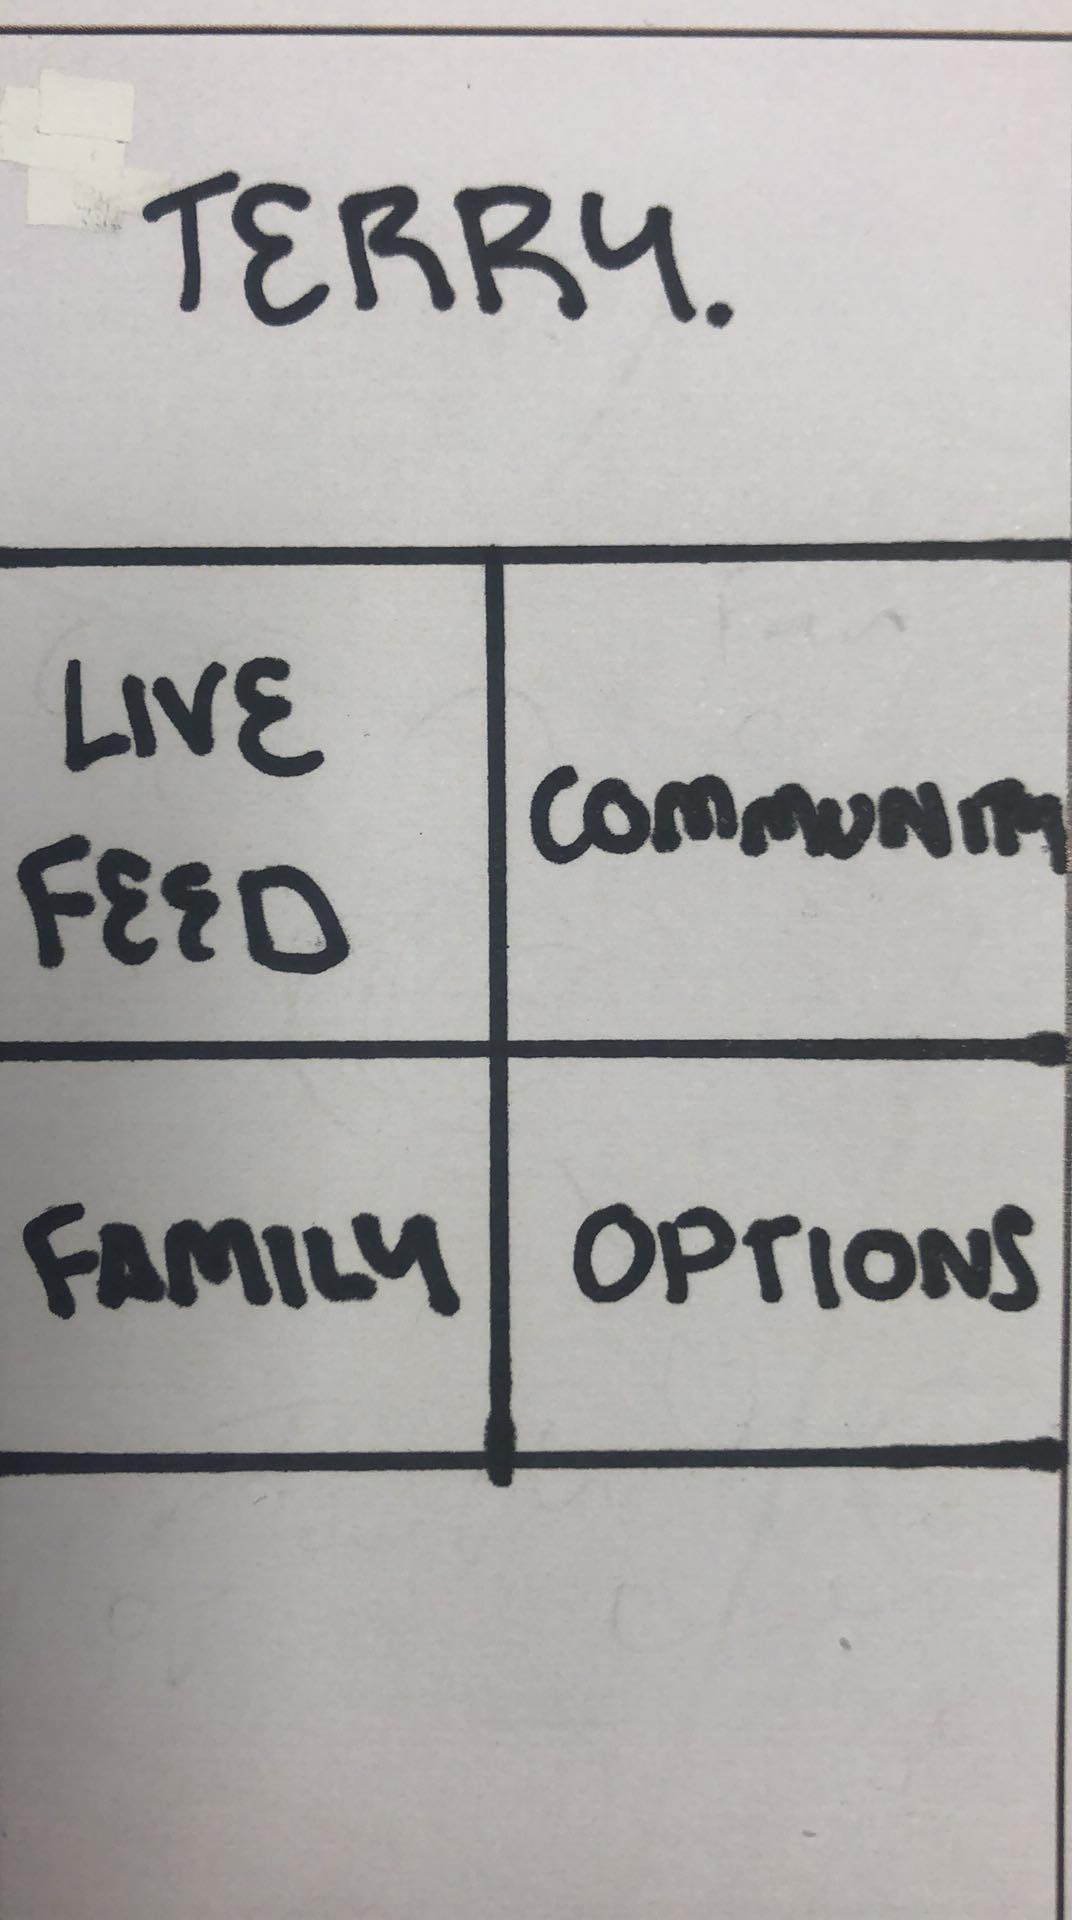 TERRY.
LIVE
FEED
COMMUNITY
FAMILY
OPTIONS